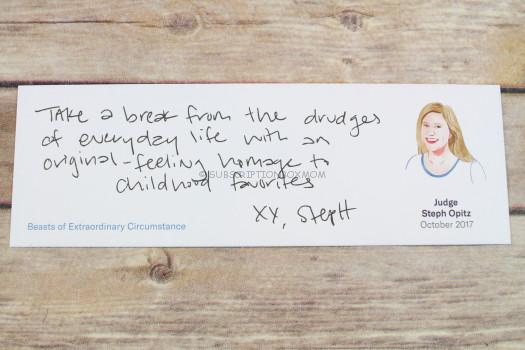 Take a break from the drudges
of everyday life with an
original-feeling homage to
childhood favorites
XX, StepH
Beasts of Extraordinary Circumstance
Judge
Steph Opitz
October 2017
© SUBSCRIPTIONBOXMOM